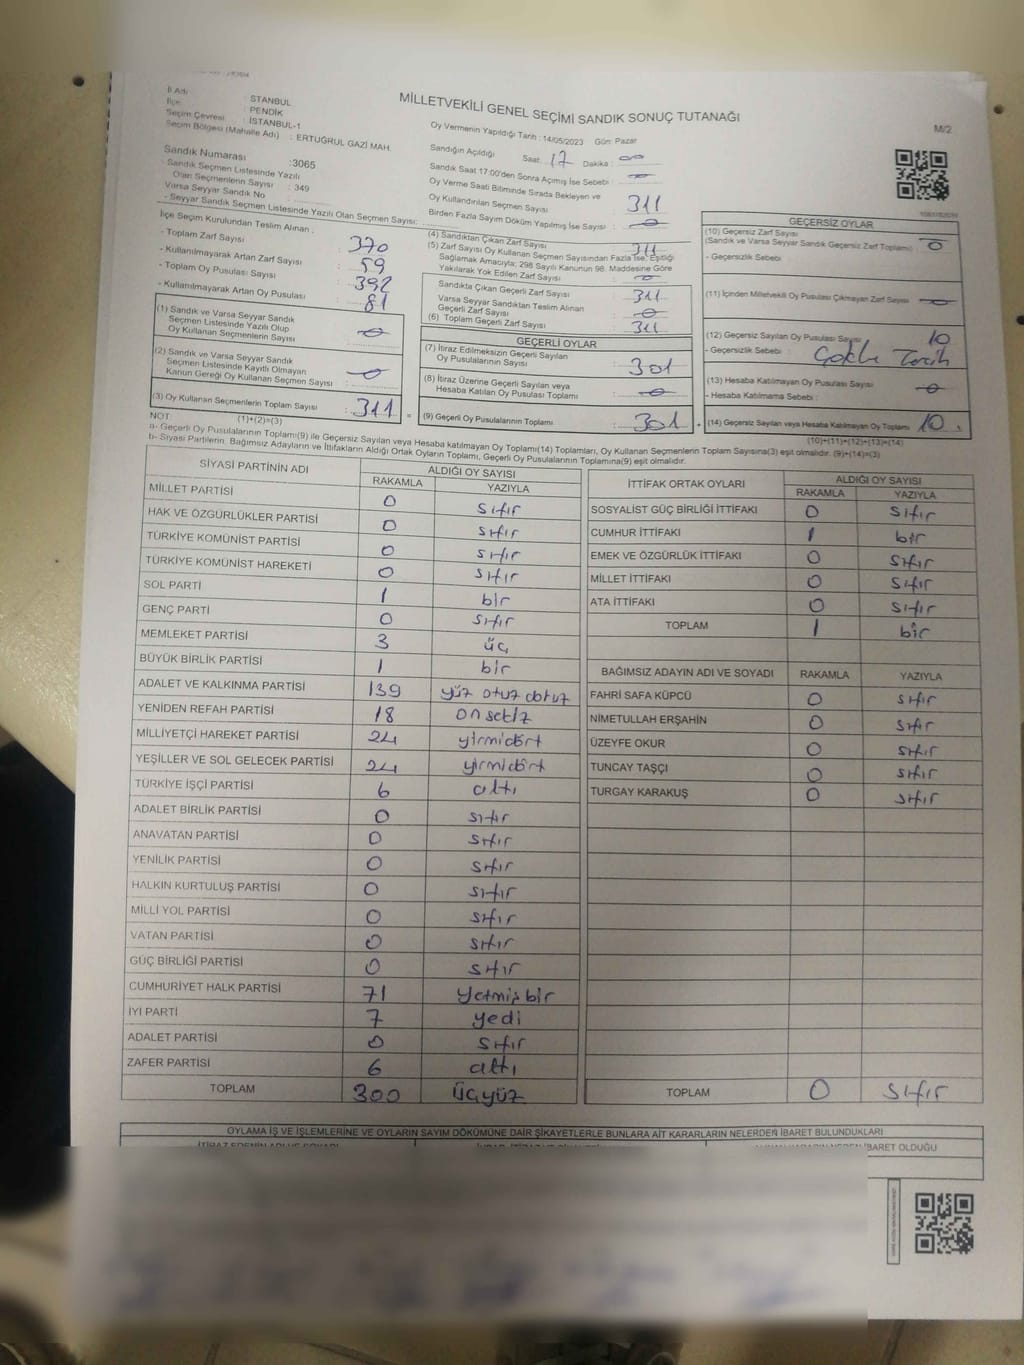 MİLLETVEKİLİ GENEL SEÇİMİ SANDIK SONUÇ TUTANAĞI
M/2
İl Adı : STANBUL
İlçe : PENDİK
Seçim Çevresi : İSTANBUL-1
Seçim Bölgesi (Mahalle Adı) : ERTUĞRUL GAZİ MAH.
Sandık Numarası :3065
- Sandık Seçmen Listesinde Yazılı
Olan Seçmenlerin Sayısı : 349
Varsa Seyyar Sandık No :
- Seyyar Sandık Seçmen Listesinde Yazılı Olan Seçmen Sayısı:
Oy Vermenin Yapıldığı Tarih : 14/05/2023 Gün: Pazar
Sandığın Açıldığı Saat: 17 Dakika : 00
Sandık Saat 17:00'den Sonra Açımış İse Sebebi : —
Oy Verme Saati Bitiminde Sırada Bekleyen ve
Oy Kullandırılan Seçmen Sayısı : 311
Birden Fazla Sayım Döküm Yapılmış İse Sayısı : 0
İlçe Seçim Kurulundan Teslim Alınan :
- Toplam Zarf Sayısı : 370
- Kullanılmayarak Artan Zarf Sayısı : 59
- Toplam Oy Pusulası Sayısı : 392
- Kullanılmayarak Artan Oy Pusulası : 81
(1) Sandık ve Varsa Seyyar Sandık
Seçmen Listesinde Yazılı Olup
Oy Kullanan Seçmenlerin Sayısı : 0
(2) Sandık ve Varsa Seyyar Sandık
Seçmen Listesinde Kayıtlı Olmayan
Kanun Gereği Oy Kullanan Seçmen Sayısı : 0
(3) Oy Kullanan Seçmenlerin Toplam Sayısı : 311 =
(1)+(2)=(3)
(4) Sandıktan Çıkan Zarf Sayısı : 311
(5) Zarf Sayısı Oy Kullanan Seçmen Sayısından Fazla İse; Eşitliği
Sağlamak Amacıyla; 298 Sayılı Kanunun 98. Maddesine Göre
Yakılarak Yok Edilen Zarf Sayısı : 0
Sandıkta Çıkan Geçerli Zarf Sayısı : 311
Varsa Seyyar Sandıktan Teslim Alınan
Geçerli Zarf Sayısı : 0
(6) Toplam Geçerli Zarf Sayısı : 311
GEÇERLİ OYLAR
(7) İtiraz Edilmeksizin Geçerli Sayılan
Oy Pusulalarının Sayısı : 301
(8) İtiraz Üzerine Geçerli Sayılan veya
Hesaba Katılan Oy Pusulası Toplamı : 0
(9) Geçerli Oy Pusulalarının Toplamı : 301 +
GEÇERSİZ OYLAR
(10) Geçersiz Zarf Sayısı
(Sandık ve Varsa Seyyar Sandık Geçersiz Zarf Toplamı) : 0
- Geçersizlik Sebebi :
(11) İçinden Milletvekili Oy Pusulası Çıkmayan Zarf Sayısı : 0
(12) Geçersiz Sayılan Oy Pusulası Sayısı : 10
- Geçersizlik Sebebi : Çoklu Tercih
(13) Hesaba Katılmayan Oy Pusulası Sayısı : 0
- Hesaba Katılmama Sebebi :
(14) Geçersiz Sayılan veya Hesaba Katılmayan Oy Toplamı : 10
(10)+(11)+(12)+(13)=(14)
NOT:
a- Geçerli Oy Pusulalarının Toplamı(9) ile Geçersiz Sayılan veya Hesaba katılmayan Oy Toplamı(14) Toplamları, Oy Kullanan Seçmenlerin Toplam Sayısına(3) eşit olmalıdır. (9)+(14)=(3)
b- Siyasi Partilerin, Bağımsız Adayların ve İttifakların Aldığı Ortak Oyların Toplamı, Geçerli Oy Pusulalarının Toplamına(9) eşit olmalıdır.
SİYASİ PARTİNİN ADI ALDIĞI OY SAYISI
RAKAMLA YAZIYLA
MİLLET PARTİSİ 0 Sıfır
HAK VE ÖZGÜRLÜKLER PARTİSİ 0 sıfır
TÜRKİYE KOMÜNİST PARTİSİ 0 sıfır
TÜRKİYE KOMÜNİST HAREKETİ 0 sıfır
SOL PARTİ 1 bir
GENÇ PARTİ 0 sıfır
MEMLEKET PARTİSİ 3 üç
BÜYÜK BİRLİK PARTİSİ 1 bir
ADALET VE KALKINMA PARTİSİ 139 yüz otuz dokuz
YENİDEN REFAH PARTİSİ 18 on sekiz
MİLLİYETÇİ HAREKET PARTİSİ 24 yirmidört
YEŞİLLER VE SOL GELECEK PARTİSİ 24 yirmidört
TÜRKİYE İŞÇİ PARTİSİ 6 altı
ADALET BİRLİK PARTİSİ 0 sıfır
ANAVATAN PARTİSİ 0 sıfır
YENİLİK PARTİSİ 0 sıfır
HALKIN KURTULUŞ PARTİSİ 0 sıfır
MİLLİ YOL PARTİSİ 0 sıfır
VATAN PARTİSİ 0 sıfır
GÜÇ BİRLİĞİ PARTİSİ 0 sıfır
CUMHURİYET HALK PARTİSİ 71 yetmiş bir
İYİ PARTİ 7 yedi
ADALET PARTİSİ 0 sıfır
ZAFER PARTİSİ 6 altı
TOPLAM 300 üçyüz
İTTİFAK ORTAK OYLARI ALDIĞI OY SAYISI
RAKAMLA YAZIYLA
SOSYALİST GÜÇ BİRLİĞİ İTTİFAKI 0 sıfır
CUMHUR İTTİFAKI 1 bir
EMEK VE ÖZGÜRLÜK İTTİFAKI 0 sıfır
MİLLET İTTİFAKI 0 sıfır
ATA İTTİFAKI 0 sıfır
TOPLAM 1 bir
BAĞIMSIZ ADAYIN ADI VE SOYADI RAKAMLA YAZIYLA
FAHRİ SAFA KÜPCÜ 0 sıfır
NİMETULLAH ERŞAHİN 0 sıfır
ÜZEYFE OKUR 0 sıfır
TUNCAY TAŞÇI 0 sıfır
TURGAY KARAKUŞ 0 sıfır
TOPLAM 0 sıfır
OYLAMA İŞ VE İŞLEMLERİNE VE OYLARIN SAYIM DÖKÜMÜNE DAİR ŞİKAYETLERLE BUNLARA AİT KARARLARIN NELERDEN İBARET BULUNDUKLARI
İBARET OLDUĞU